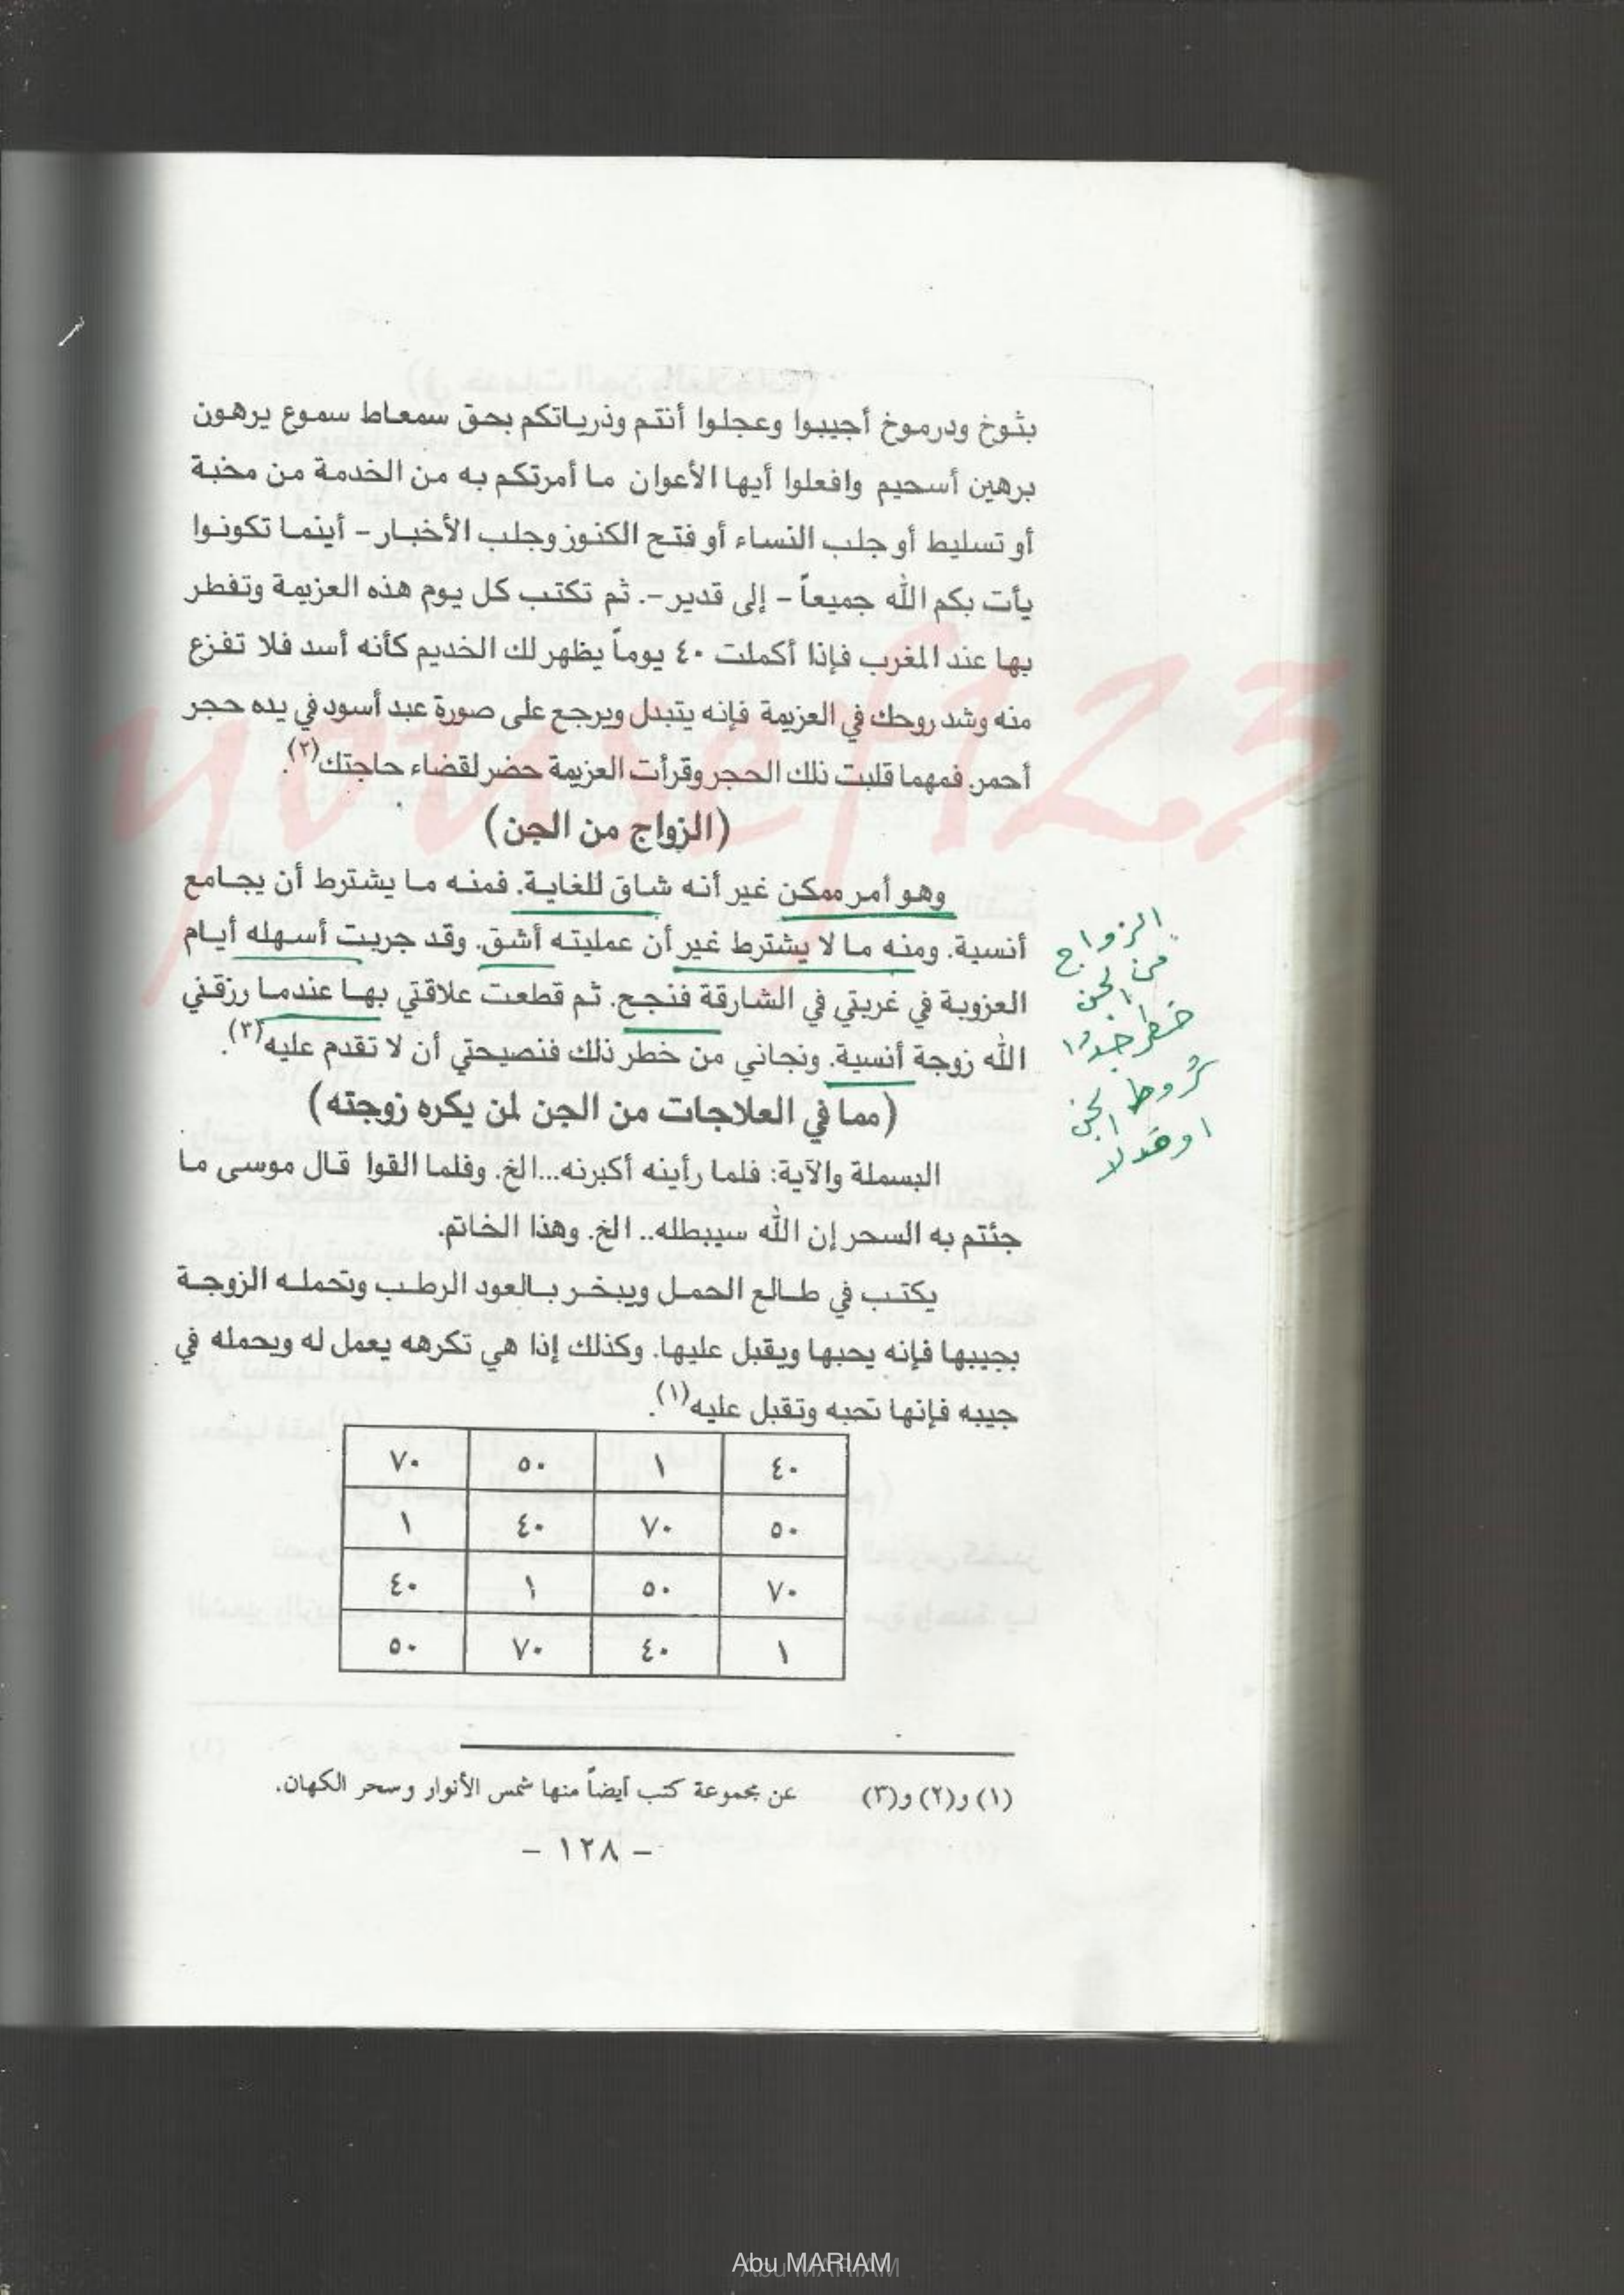 بثوخ ودرموخ أجيبوا وعجلوا أنتم وذرياتكم بحق سمعاط سموع يرهون
برهين أسحيم وافعلوا أيها الأعوان ما أمرتكم به من الخدمة من محبة
أو تسليط أو جلب النساء أو فتح الكنوز وجلب الأخبار – أينما تكونوا
يأت بكم الله جميعاً – إلى قدير –. ثم تكتب كل يوم هذه العزيمة وتفطر
بها عند المغرب فإذا أكملت ٤٠ يوماً يظهر لك الخديم كأنه أسد فلا تفزع
منه وشد روحك في العزيمة فإنه يتبدل ويرجع على صورة عبد أسود في يده حجر
أحمر. فمهما قلبت ذلك الحجر وقرأت العزيمة حضر لقضاء حاجتك(٢).
(الزواج من الجن)
وهو أمر ممكن غير أنه شاق للغاية. فمنه ما يشترط أن يجامع
أنسية. ومنه ما لا يشترط غير أن عمليته أشق. وقد جربت أسهله أيام
العزوبة في غربتي في الشارقة فنجح. ثم قطعت علاقتي بها عندما رزقني
الله زوجة أنسية. ونجاني من خطر ذلك فنصيحتي أن لا تقدم عليه(٣).
الزواج
من الجن
خطر جدا
شروط الجن
(مما في العلاجات من الجن لمن يكره زوجته)
البسملة والآية: فلما رأينه أكبرنه...الخ. وفلما القوا قال موسى ما
جئتم به السحر إن الله سيبطله.. الخ. وهذا الخاتم.
يكتب في طالع الحمل ويبخر بالعود الرطب وتحمله الزوجة
بجيبها فإنه يحبها ويقبل عليها. وكذلك إذا هي تكرهه يعمل له ويحمله في
جيبه فإنها تحبه وتقبل عليه(١).
٤٠ ١ ٥٠ ٧٠
٥٠ ٧٠ ٤٠ ١
٧٠ ٥٠ ١ ٤٠
١ ٤٠ ٧٠ ٥٠
(١) و(٢) و(٣) عن مجموعة كتب أيضاً منها شمس الأنوار وسحر الكهان.
– ١٢٨ –
yousef123
Abu MARIAM